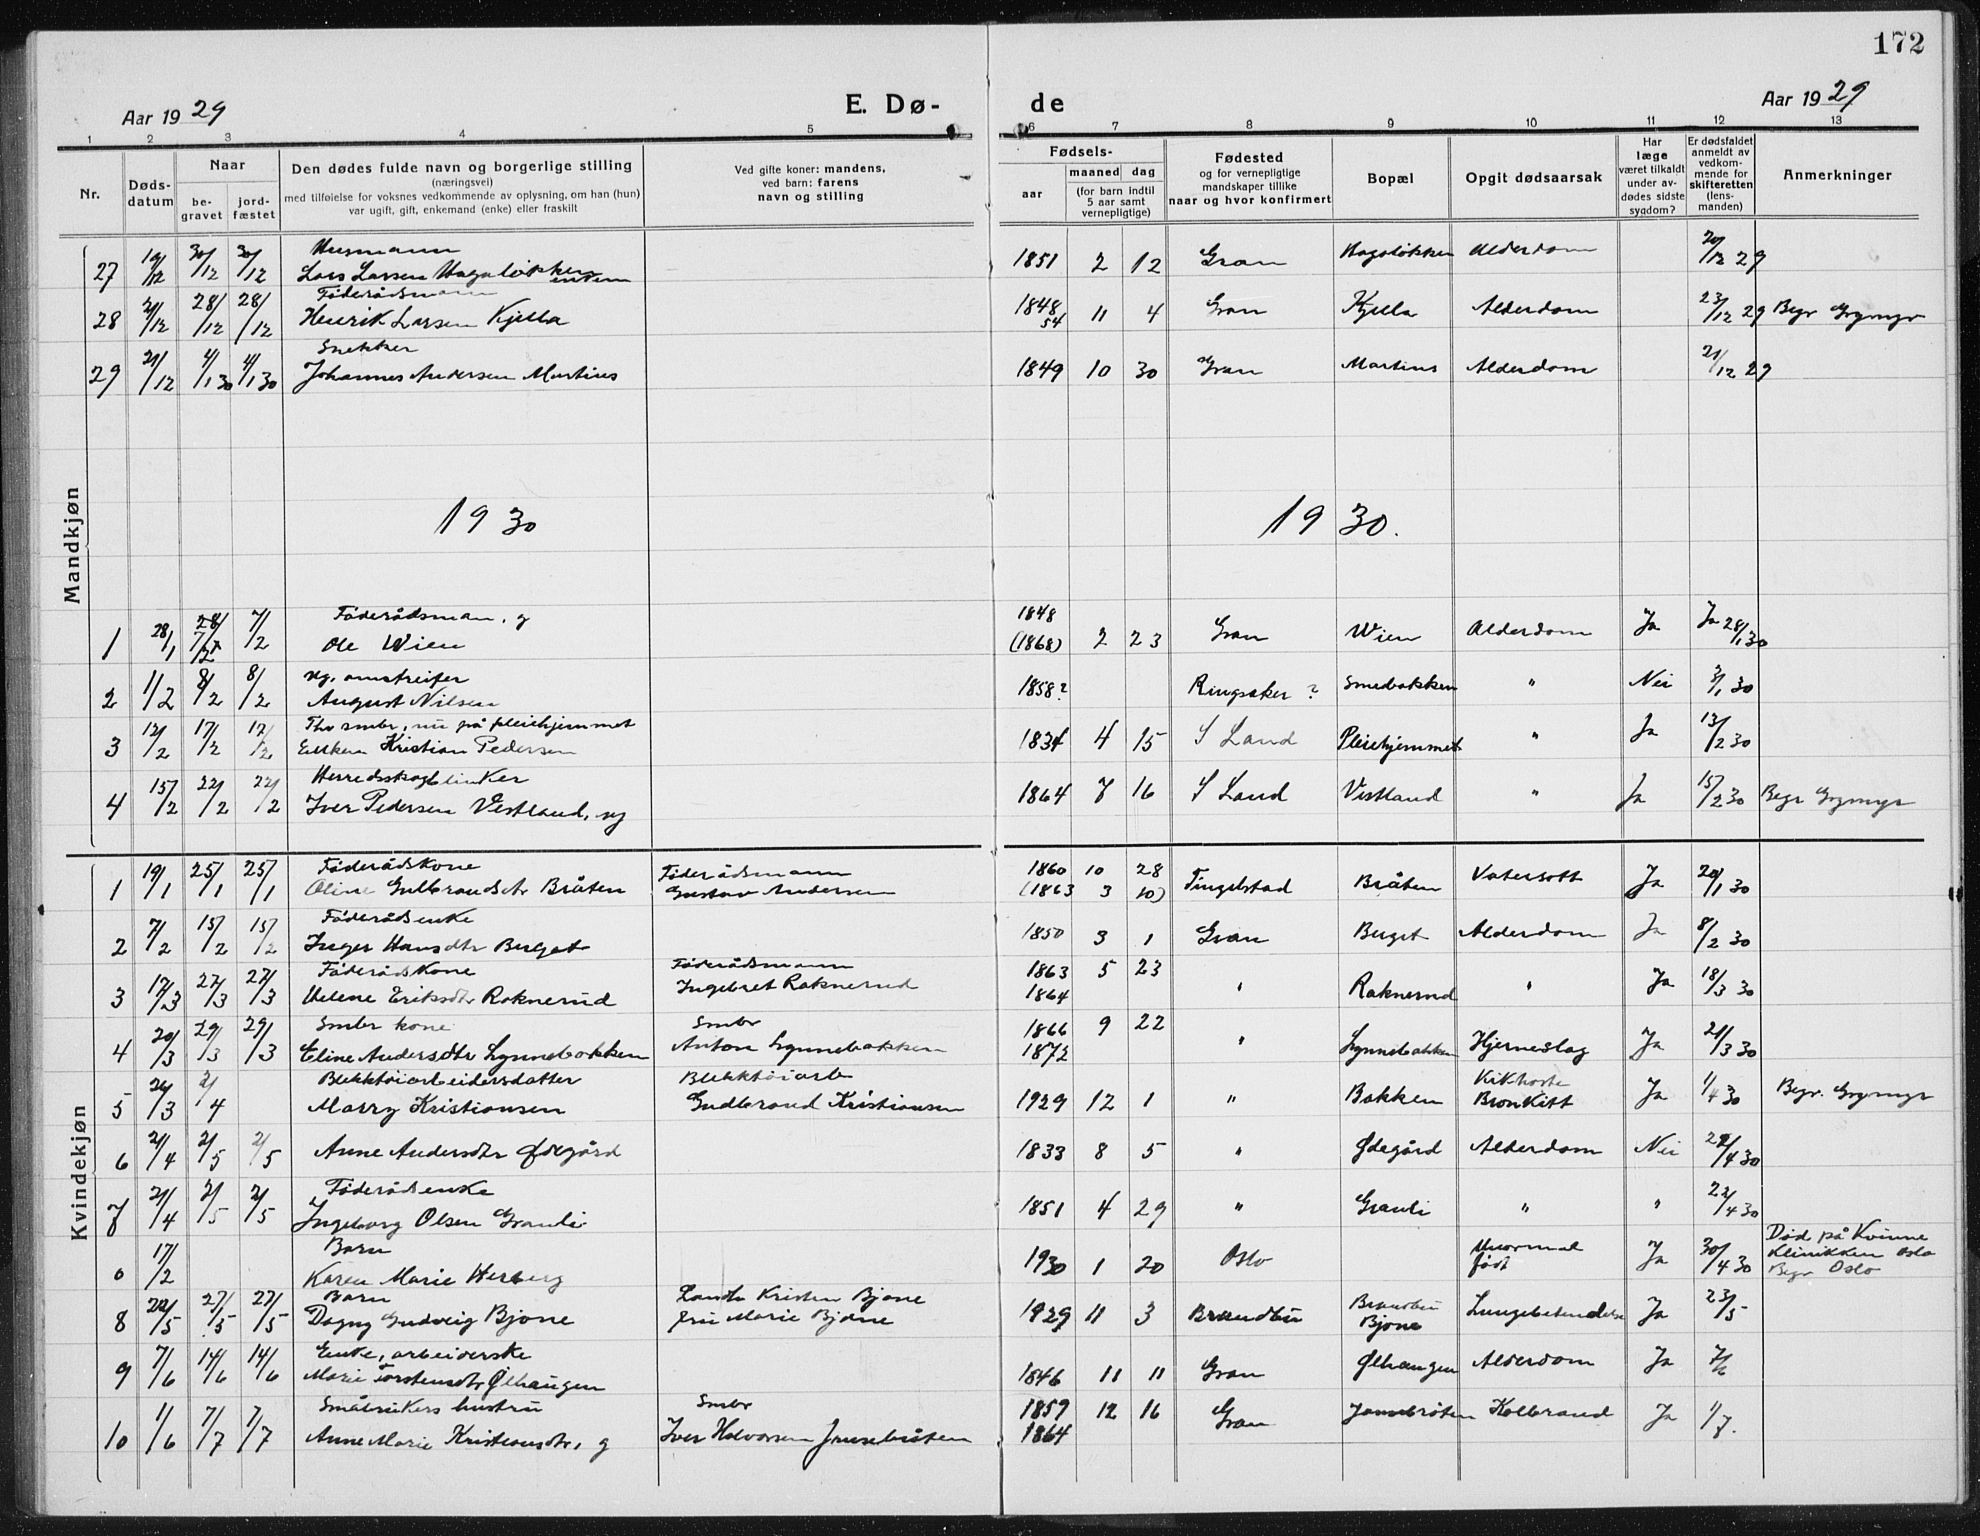 172
Aar 1929
E. Dø-
de
Aar 1929
1 2 3 4 5 6 7 8 9 10 11 12 13
Nr.
Døds-
datum
Naar
be-
gravet
jord-
fæstet
Den dødes fulde navn og borgerlige stilling
(næringsvei)
med tilføielse for voksnes vedkommende av oplysning, om han (hun)
var ugift, gift, enkemand (enke) eller fraskilt
Ved gifte koner: mandens,
ved barn: farens
navn og stilling
Fødsels-
aar
maaned dag
(for barn indtil
5 aar samt
vernepligtige)
Fødested
og for vernepligtige
mandskaper tillike
naar og hvor konfirmert
Bopæl
Opgit dødsaarsak
Har
læge
været tilkaldt
under av-
dødes sidste
sygdom?
Er dødsfaldet
anmeldt av
vedkom-
mende for
skifteretten
(lens-
manden)
Anmerkninger
Mandkjøn
Husmann
27 19/12 30/12 30/12 Lars Larsen Hagaløkken 1851 2 12 Gran Hagaløkken Alderdom 20/12 29
Føderådsmann
28 21/12 28/12 28/12 Henrik Larsen Kjella 1848 54 11 4 Gran Kjella Alderdom 23/12 29 Begr Grymyr
Snekker
29 21/12 4/1 30 4/1 30 Johannes Andersen Martins 1849 10 30 Gran Martins Alderdom 21/12 29
1930 1930.
Føderådsman, g 1848
1 28/1 7/2 7/2 Ole Wien (1868) 2 23 Gran Wien Alderdom Ja Ja 28/1 30
ug. omstreifer
2 1/2 8/2 8/2 August Nilsen 1858? Ringsaker? Smebakken " Nei 3/1 30
Fhv smbr, nu på pleiehjemmet
3 12/2 17/2 17/2 Enkem Kristian Pedersen 1834 4 15 S Land Pleiehjemmet " Ja 13/2 30
Herredsskogblinker
4 15/2 22/2 22/2 Iver Pedersen Vestland, ug 1864 7 16 S Land Vestland " Ja 15/2 30 Begr Grymyr
Kvindekjøn
Føderådskone Føderådsmann 1860 10 28
1 19/1 25/1 25/1 Oline Gulbrandsdtr Bråten Gustav Andersen (1863 3 10) Tingelstad Bråten Vatersott Ja 20/1 30
Føderådsenke
2 7/2 15/2 15/2 Inger Hansdtr Berget 1850 3 1 Gran Berget Alderdom Ja 8/2 30
Føderådskone Føderådsmann 1863 5 23
3 17/3 27/3 27/3 Helene Eriksdtr Raknerud Ingebret Raknerud 1864 " Raknerud " Ja 18/3 30
Smbr kone Smbr 1866 9 22
4 20/3 29/3 29/3 Eline Andersdtr Lynnebakken Anton Lynnebakken 1872 " Lynnebakken Hjerneslag Ja 21/3 30
Blekktøiarbeidersdatter Blekktøiarb Kikhoste
5 26/3 2/4 Marry Kristiansen Gudbrand Kristiansen 1929 12 1 " Bakken Bronkitt Ja 1/4 30 Begr. Grymyr
6 21/4 2/5 2/5 Anne Andersdtr Ødegård 1833 8 5 " Ødegård Alderdom Nei 22/4 30
Føderådsenke
7 21/4 2/5 2/5 Ingeborg Olsen Granli 1851 4 29 " Granli " " 22/4 30
Barn Unormal Død på Kvinne
0 17/2 Karen Marie Herberg 1930 1 20 Oslo født Ja 30/4 30 Klinikken Oslo
Begr Oslo
Barn Landh Kristen Bjone Brandbu
8 22/5 27/5 27/5 Dagny Gudveig Bjone fru Marie Bjone 1929 11 3 Brandbu Bjone Lungebetendelse Ja 23/5
Enke, arbeiderske
9 7/6 14/6 14/6 Marie Torstensdtr Ølhaugen 1846 11 11 Gran Ølhaugen Alderdom Ja 7/6
Småbrukers hustru Smbr 1859 12 16
10 1/6 7/7 7/7 Anne Marie Kristiansdtr, g Iver Halvorsen Jonsebråten 1864 Gran Jonsebråten Kolbrand Ja 1/7.